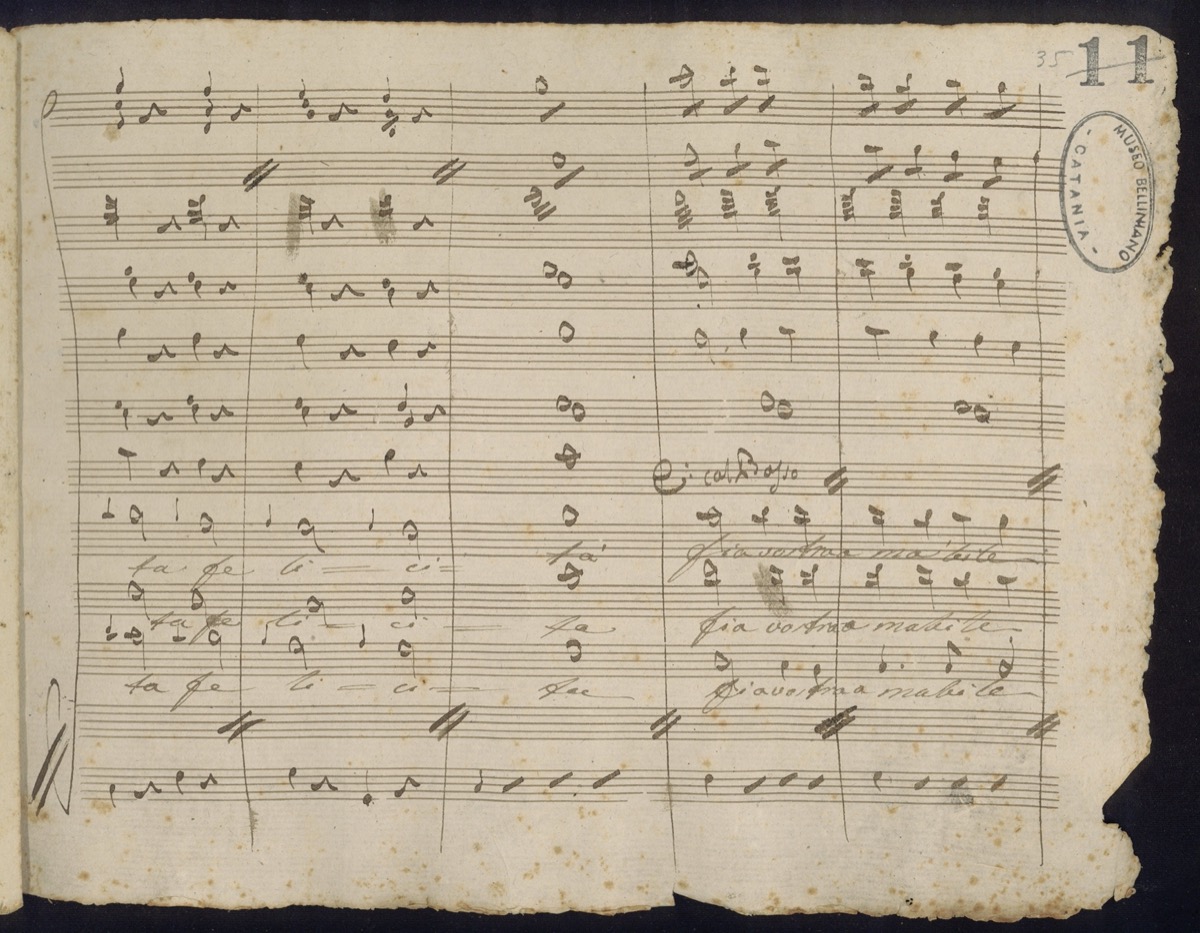 35 11
MUSEO BELLINIANO
- CATANIA -
col Basso
ta fe li = ci = tà fia vostra a mabile
ta fe li - ci - ta fia vostra a mabile
ta fe li - ci - ta fia vostra a mabile